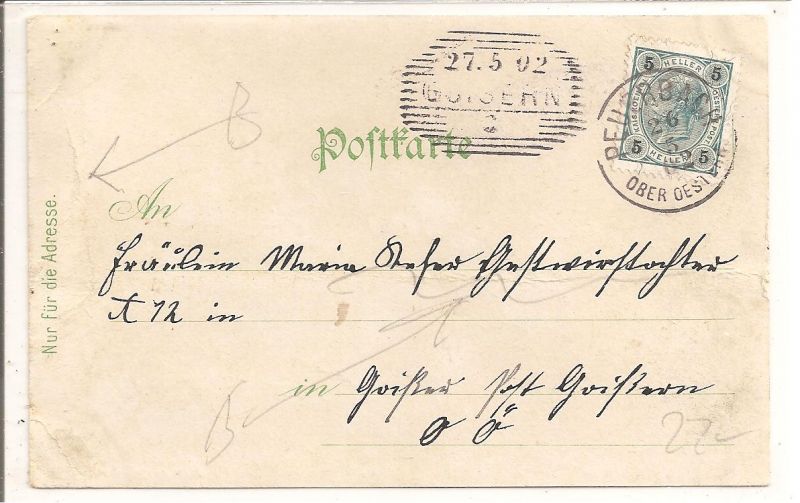 27.5 02
GOISERN
2
5 HELLER 5
5 HELLER 5
PEUERBACH
26
5
02
OBER OEST.
Postkarte
An
Fräulein Maria Kefer Gastwirtstochter
A 12 in
in Goisern Post Goisern
O Ö
Nur für die Adresse.
B
B
22-